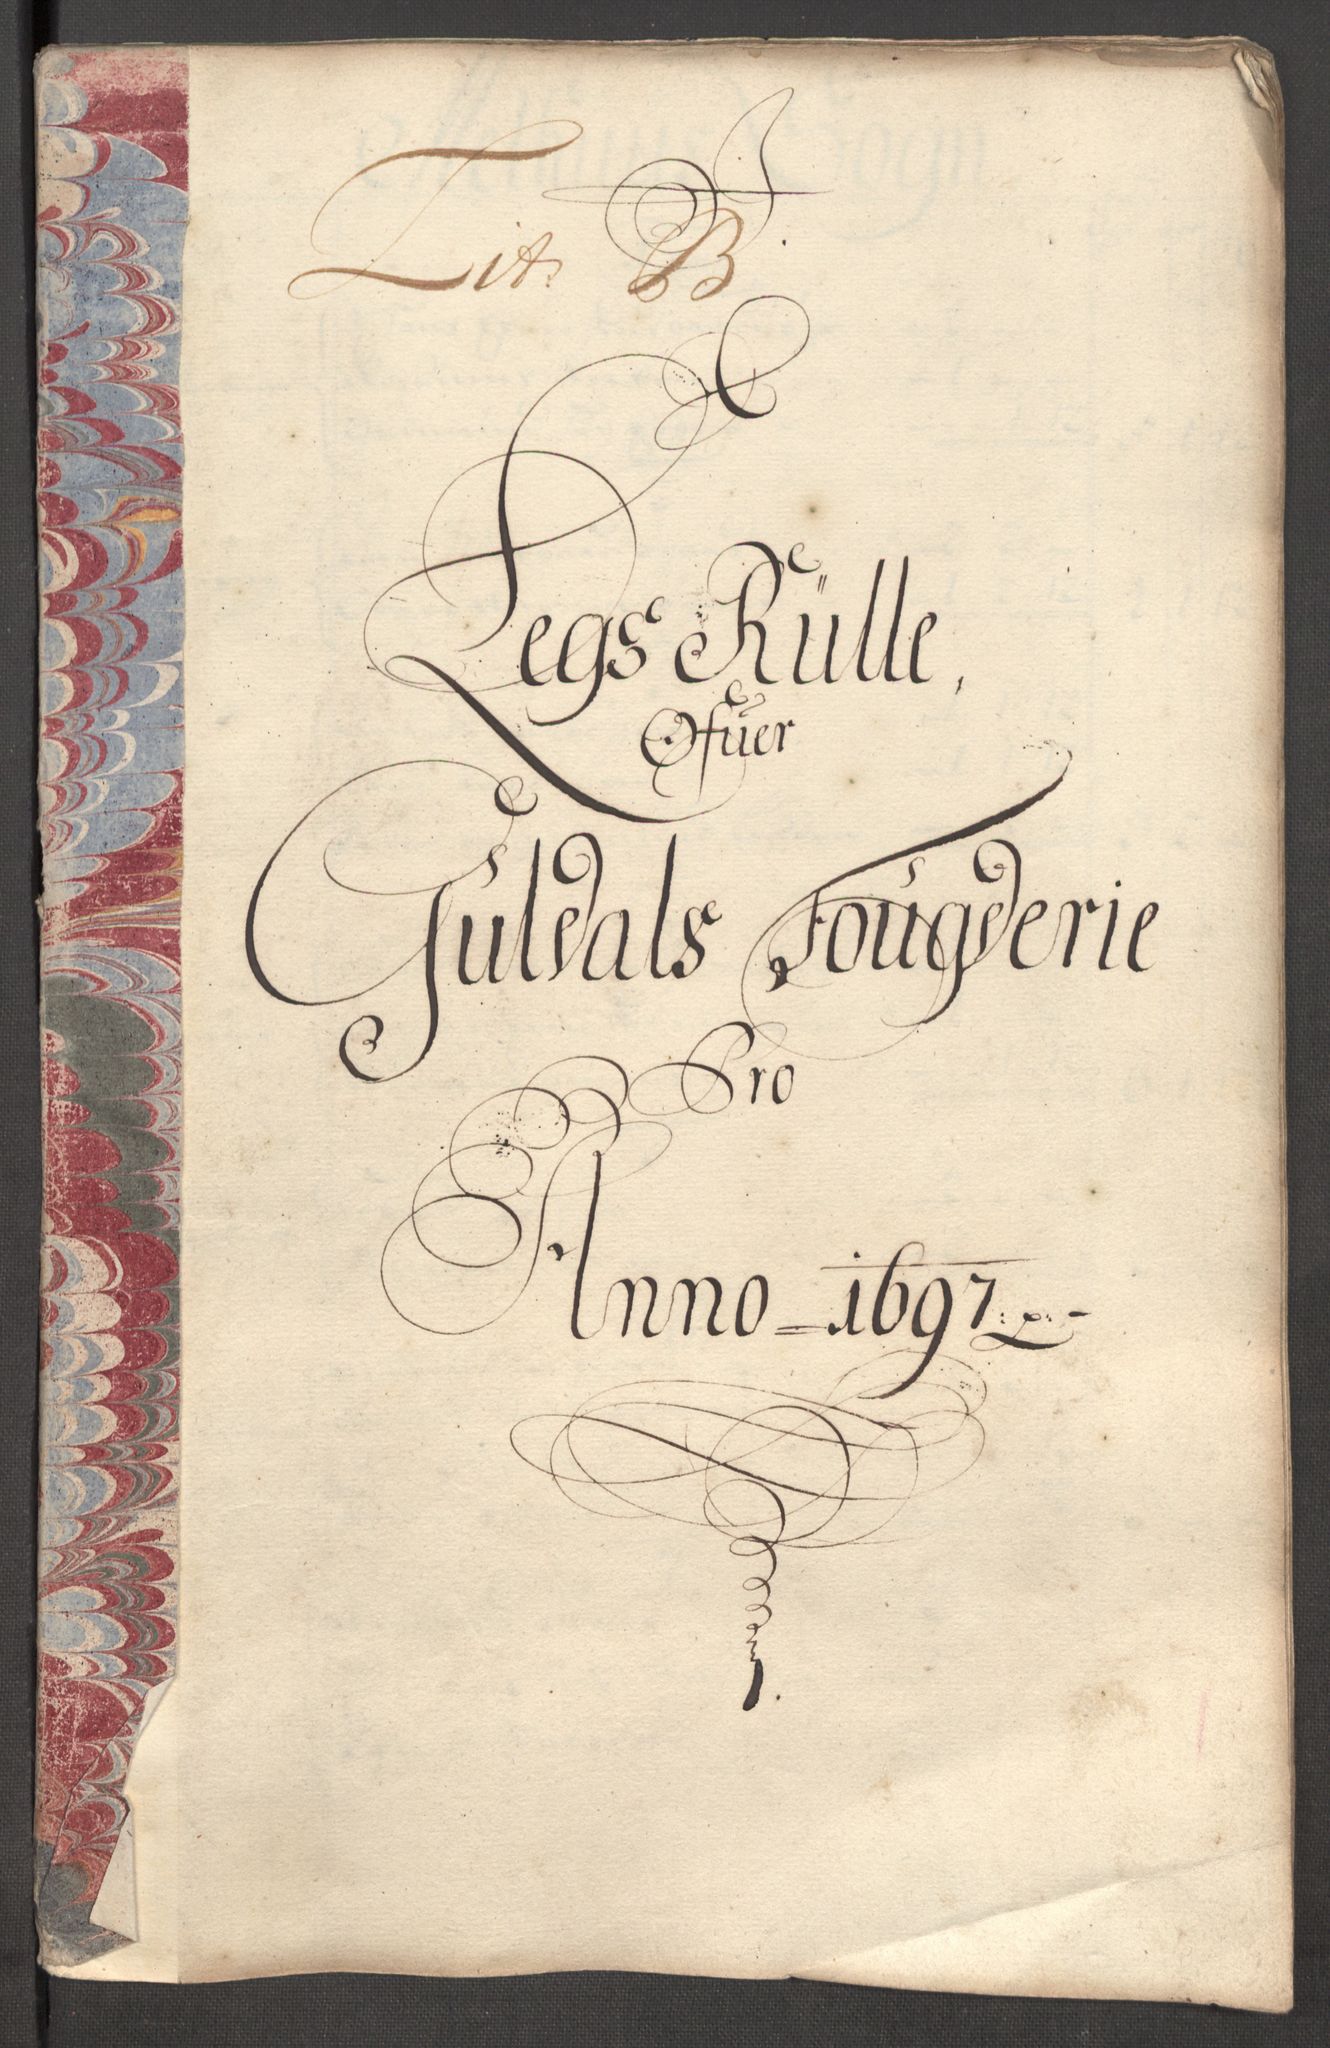 Lit. B.
Legs Rülle,
Ofüer
Guldals Fougderie
Pro
Anno 1697